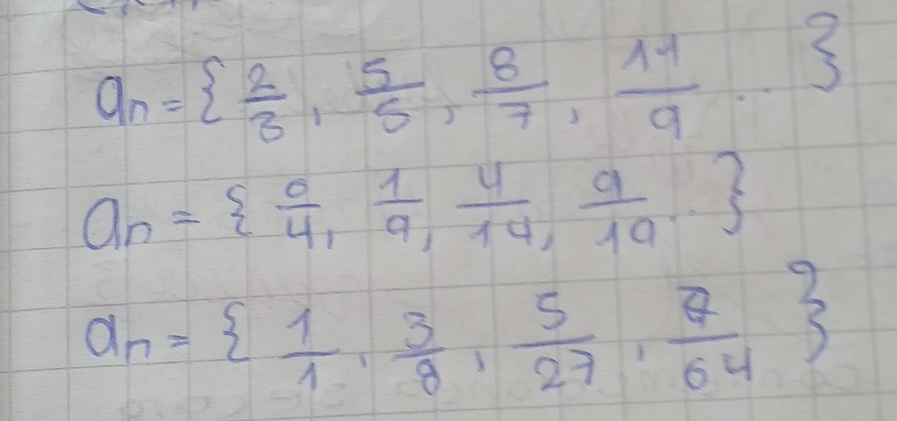 aₙ = { 2/3, 5/5, 8/7, 11/9 .. }
aₙ = { 0/4, 1/9, 4/14, 9/19 .. }
aₙ = { 1/1, 3/8, 5/27, 7/64 }